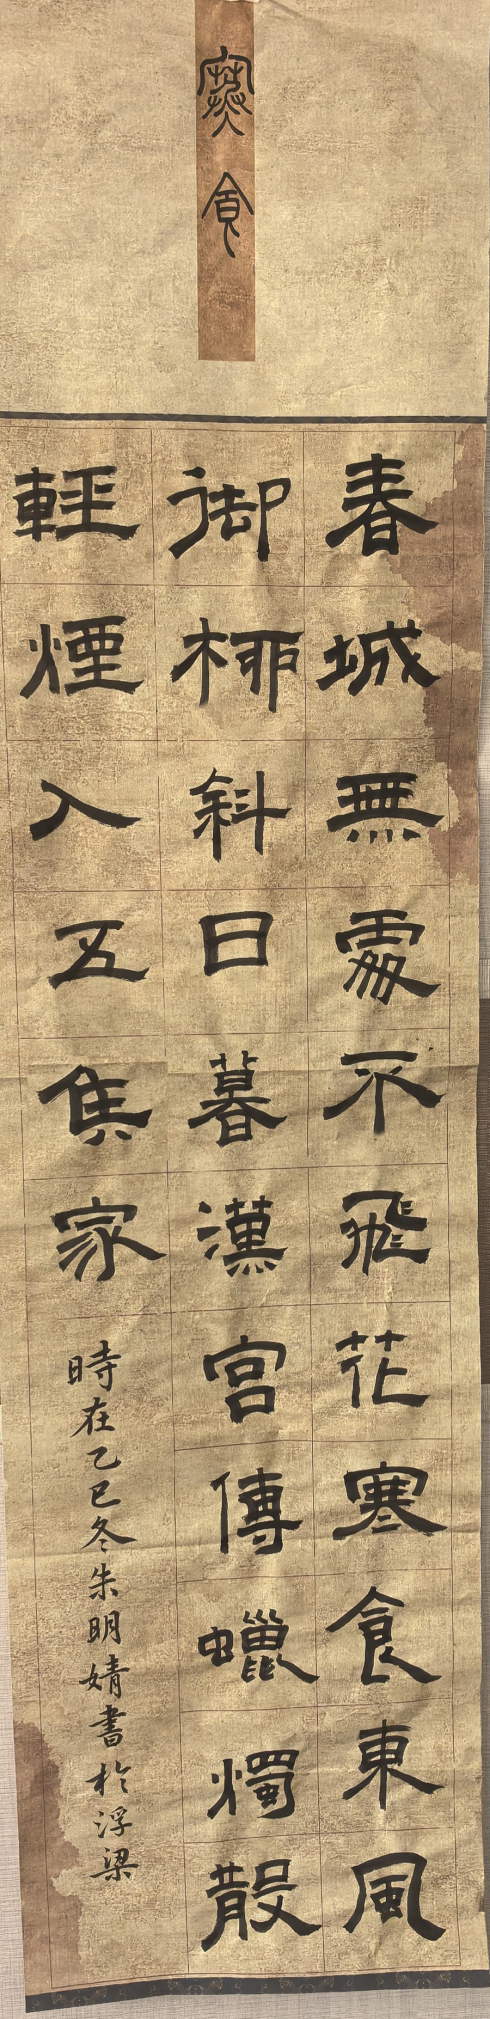 寒食
春城無處不飛花寒食東風
御柳斜日暮漢宮傳蠟燭散
輕煙入五侯家
時在乙巳冬朱明婧書於浮梁